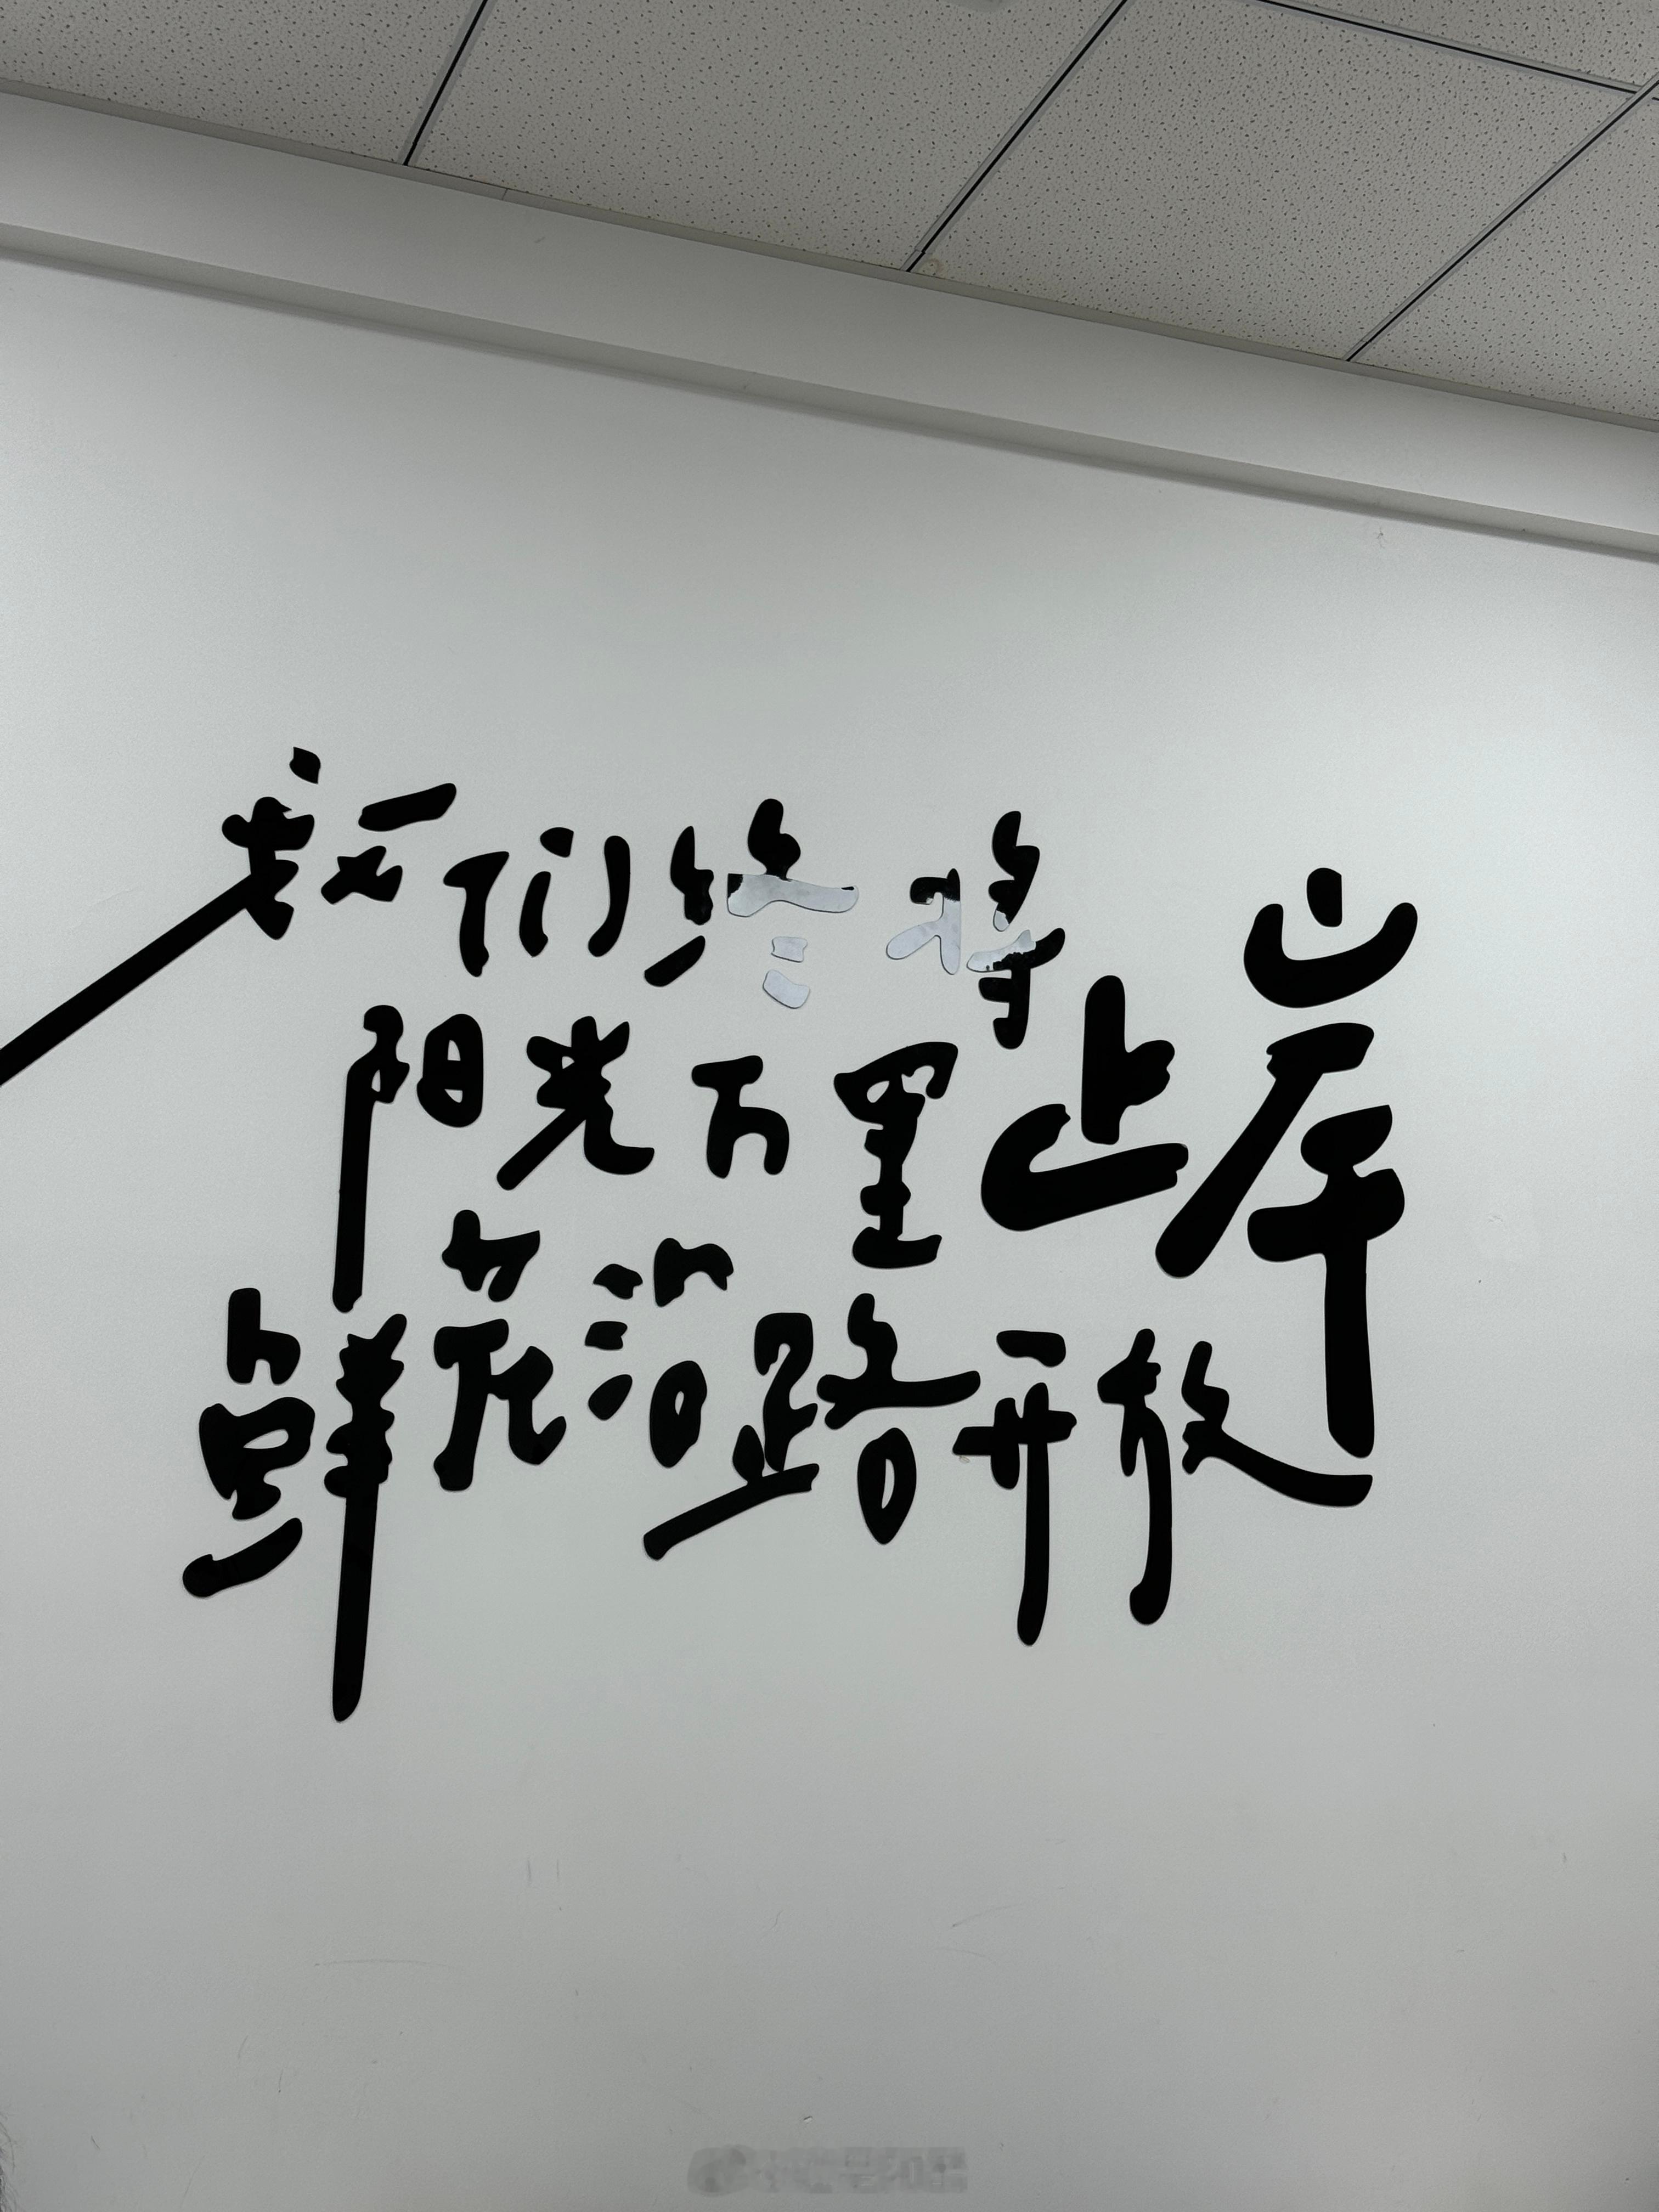 我们终将上岸
阳光万里
鲜花沿路开放